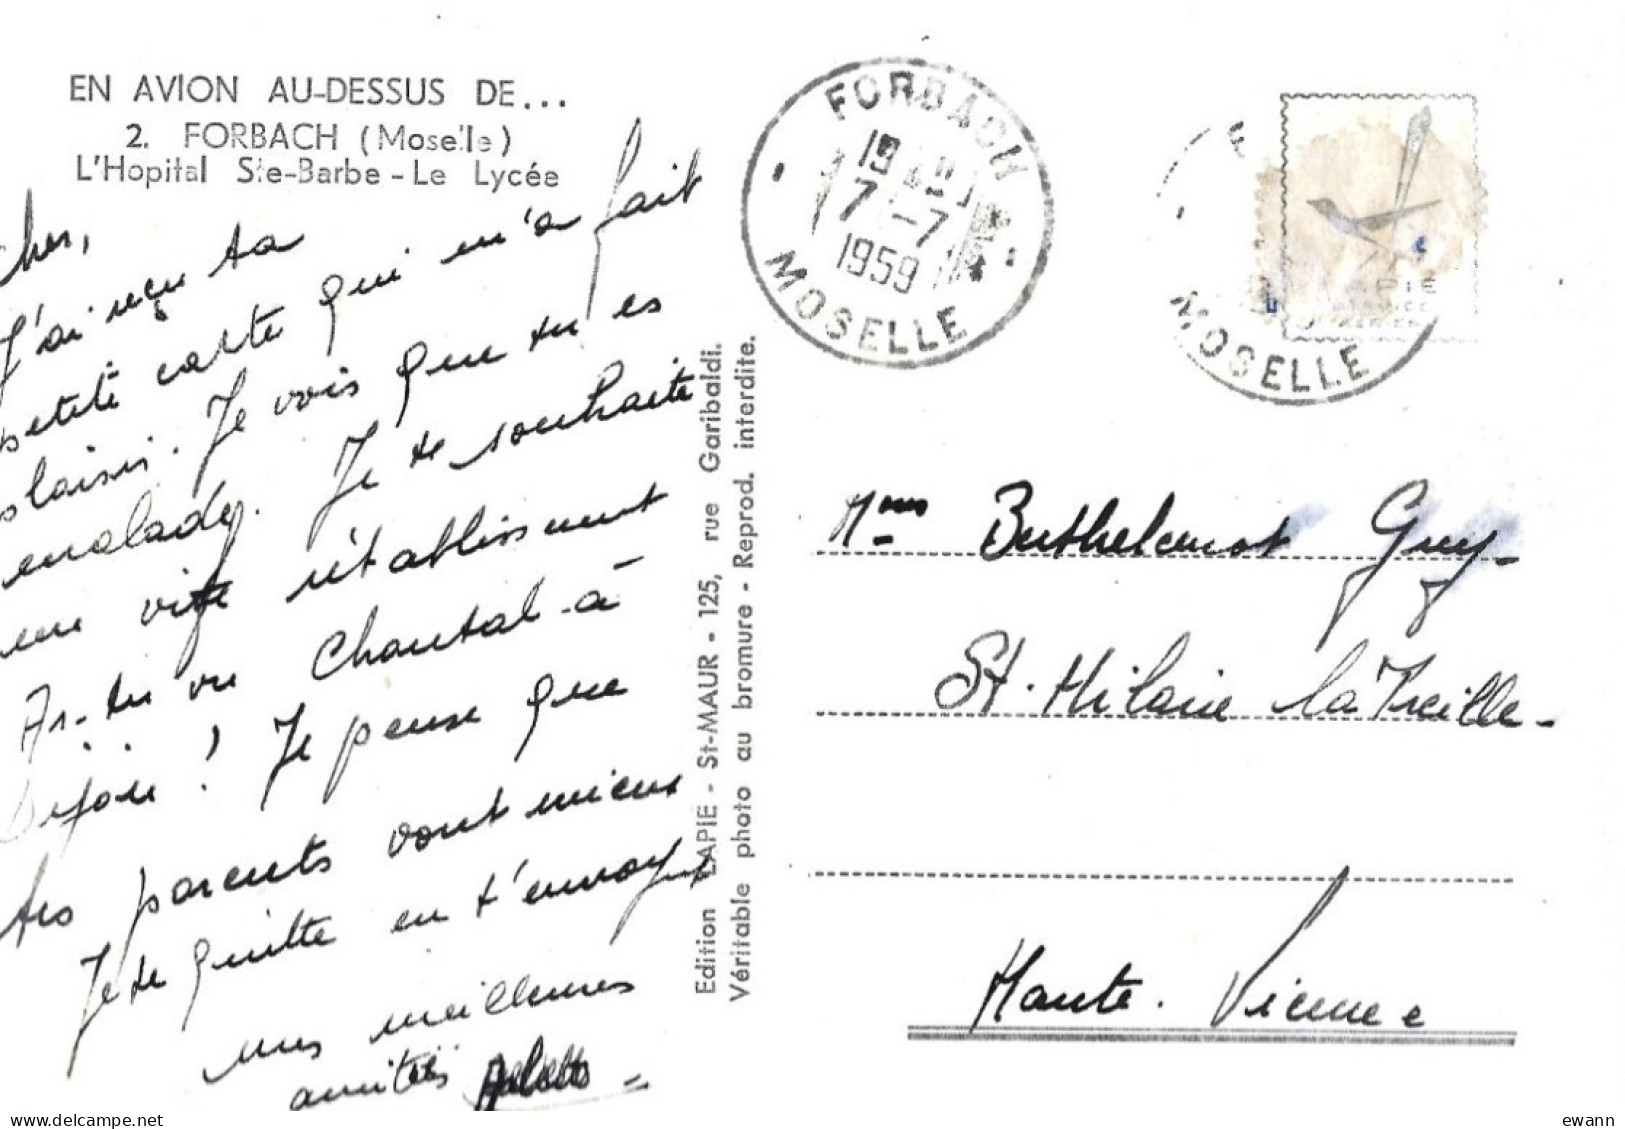 EN AVION AU-DESSUS DE...
2. FORBACH (Moselle)
L'Hopital Ste-Barbe - Le Lycée
Cher,
J'ai reçu ta
petite carte qui m'a fait
plaisir. Je vois que tu es
malade. Je te souhaite
un vite rétablissement
As-tu vu Chantal à
Dijon ! Je pense que
tes parents vont mieux
Je te quitte en t'envoyant
mes meilleures
amitiés
Edition LAPIE - St-MAUR - 125, rue Garibaldi.
Véritable photo au bromure - Reprod. interdite.
FORBACH
19
7 -7
1959
MOSELLE
MOSELLE
LAPIE
Guy
St. Hilaire la Treille
Haute. Vienne
ewann